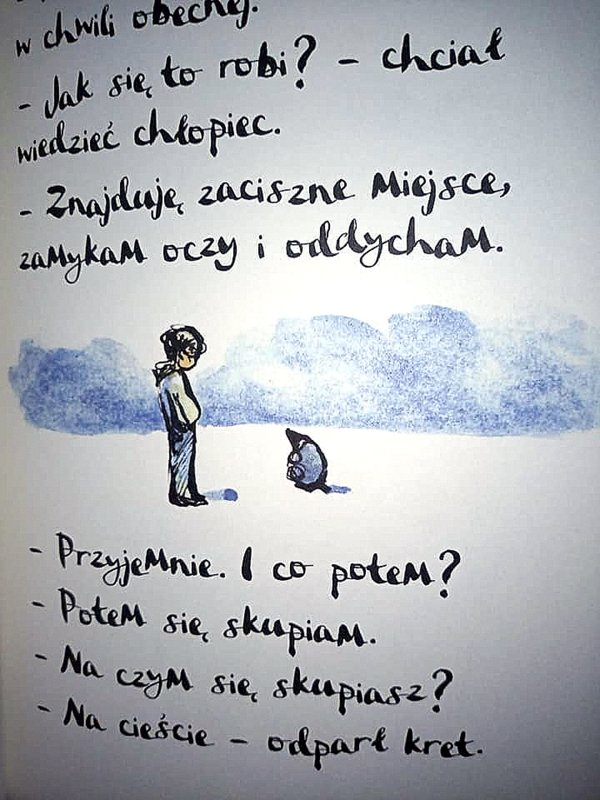 w chwili obecnej.
- Jak się to robi? - chciał
wiedzieć chłopiec.
- Znajduję zaciszne miejsce,
zamykam oczy i oddycham.
- Przyjemnie. I co potem?
- Potem się skupiam.
- Na czym się skupiasz?
- Na cieście - odparł kret.